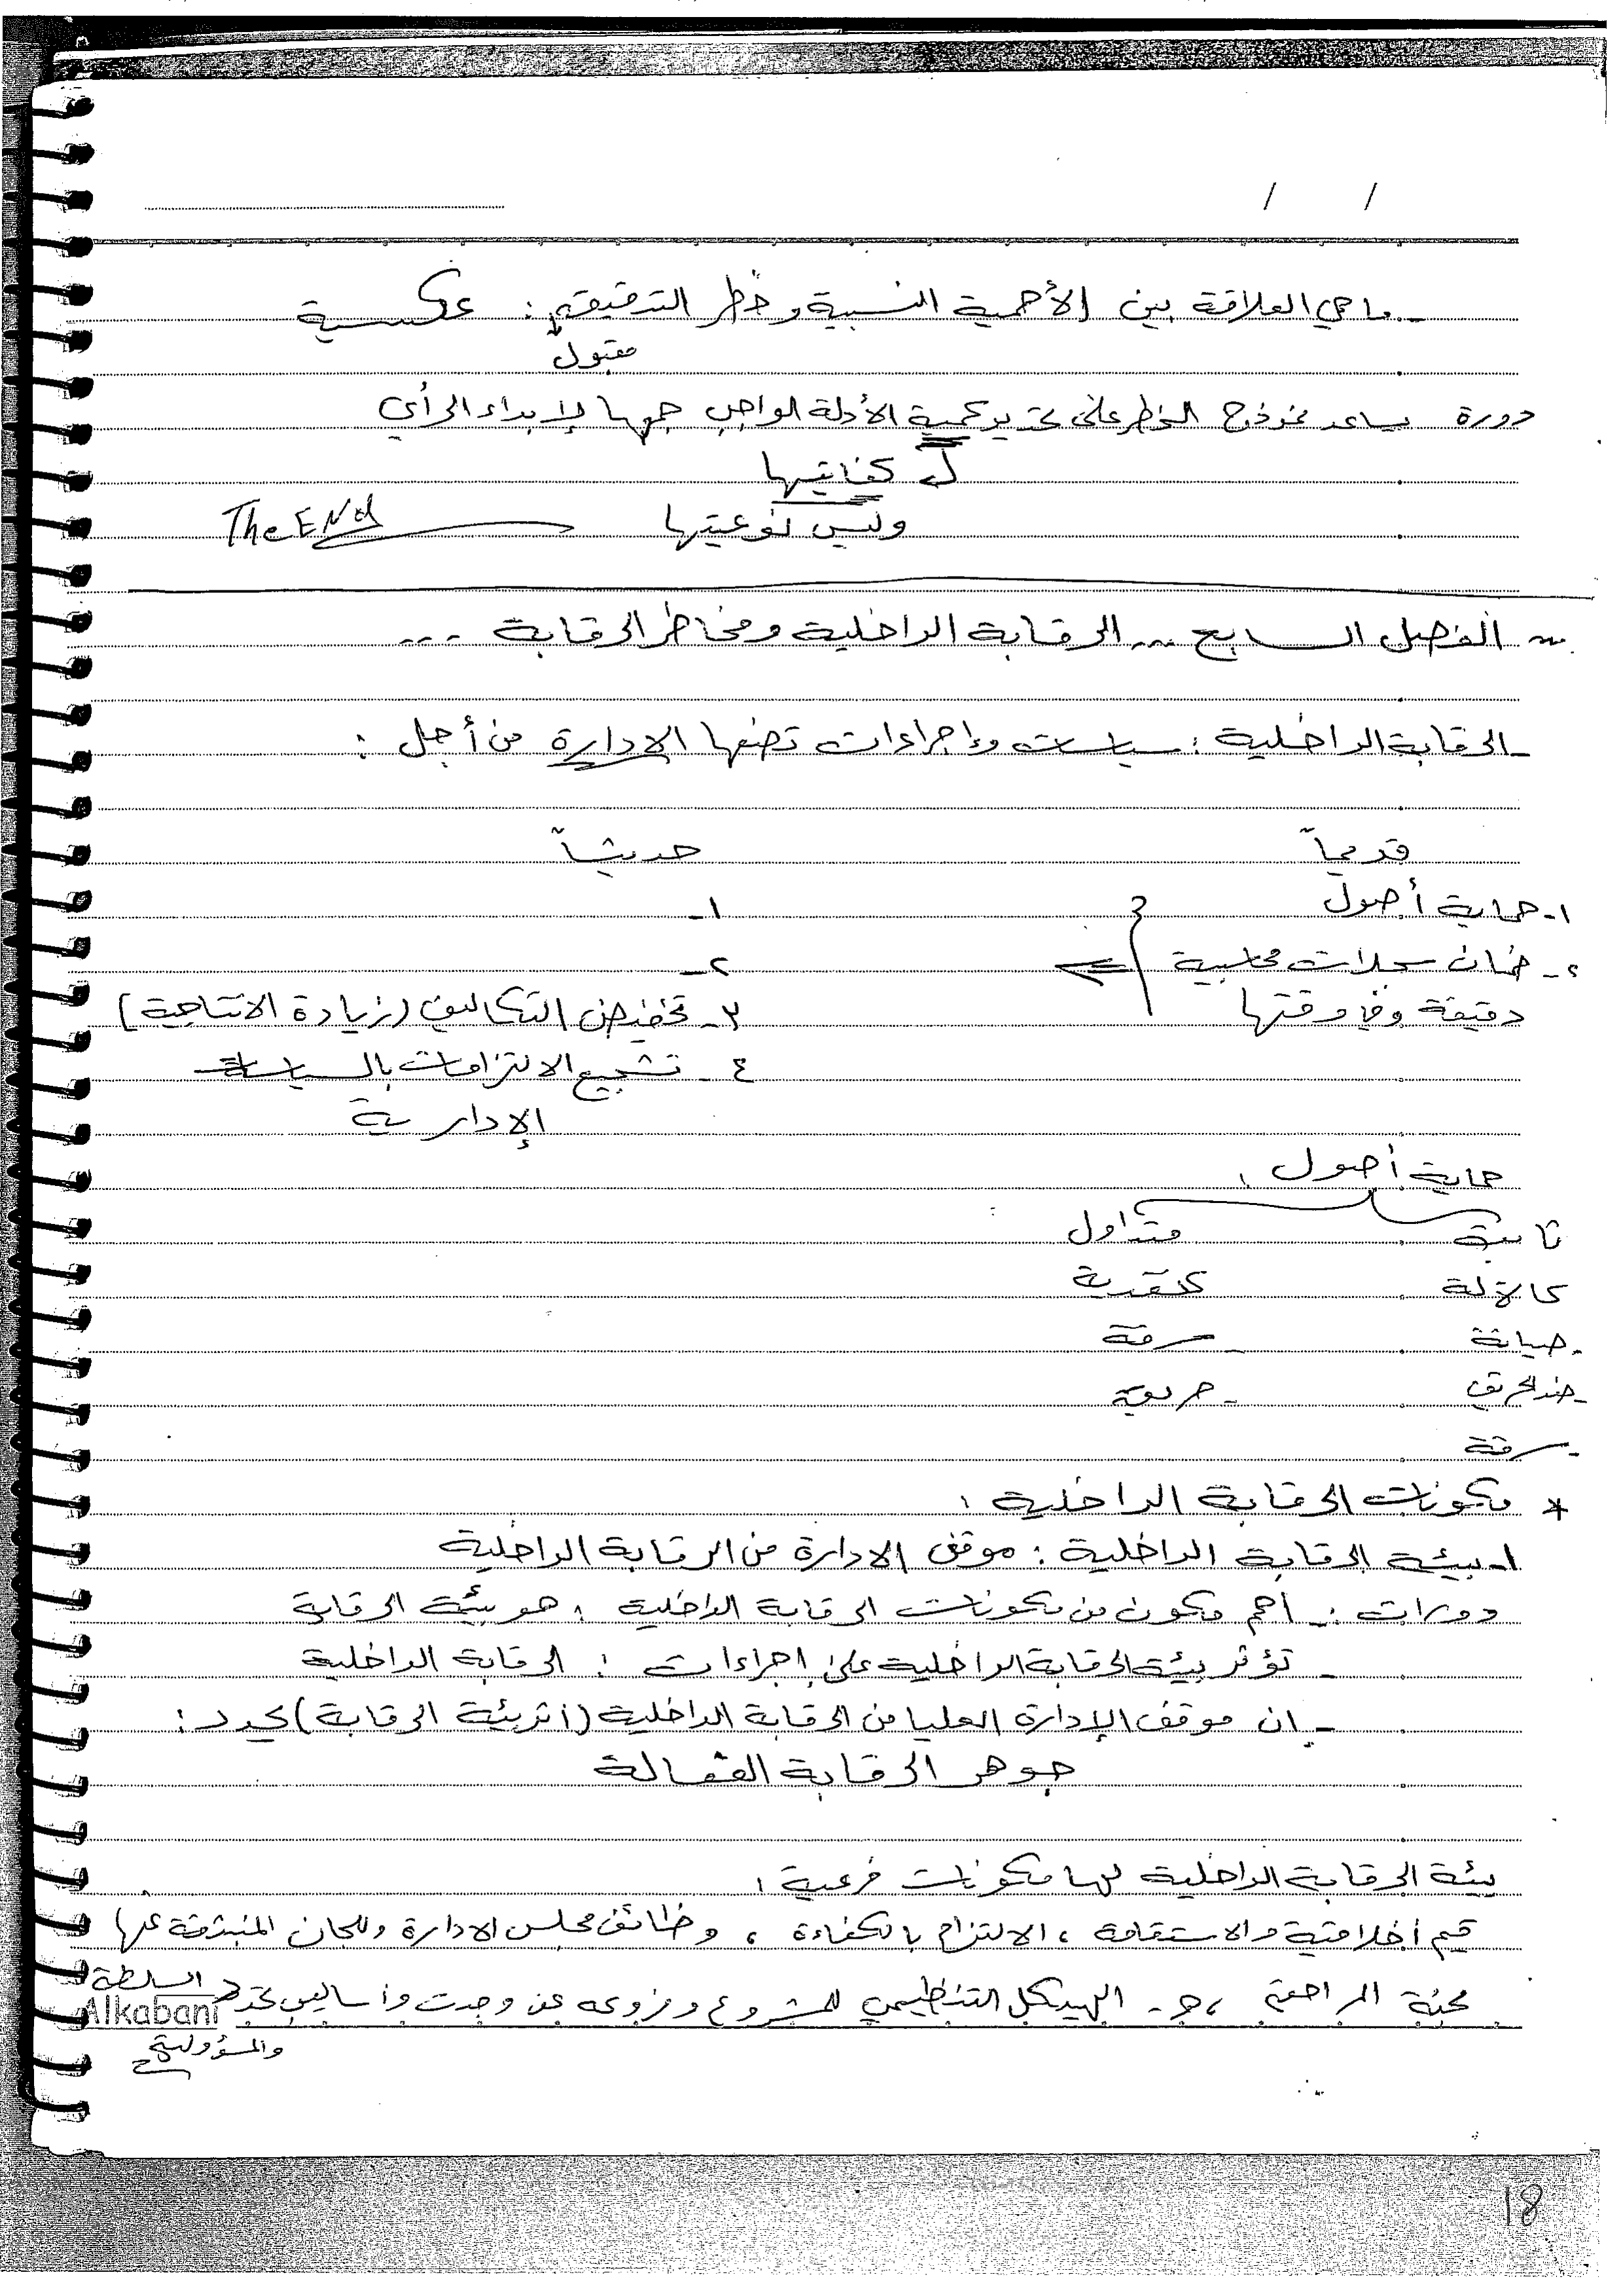 / /
- ما هي العلاقة بين الأهمية النسبية وخطر التدقيق : عكسية
مقبول
دورة يساعد نموذج الخطر على تحديد كمية الأدلة الواجب جمعها لإبداء الرأي
كفايتها
وليس نوعيتها The END
~ الفصل السابع ... الرقابة الداخلية ومخاطر الرقابة ...
- الرقابة الداخلية : سياسات وإجراءات تضعها الإدارة من أجل :
قديماً حديثاً
١- حماية أصول ١-
٢- ضمان سجلات محاسبية ٢-
دقيقة وفي وقتها ٣- تخفيض التكاليف (زيادة الانتاجية)
٤- تشجيع الالتزامات بالسياسات
الإدارية
حماية أصول :
ثابتة متداول
كالآلة كنقدية
- صيانة - سرقة
- ضد الحريق - حريق
- سرقة
* مكونات الرقابة الداخلية :
١- بيئة الرقابة الداخلية : موقف الادارة من الرقابة الداخلية
دورات :- أهم مكون من مكونات الرقابة الداخلية : هو بيئة الرقابة
- تؤثر بيئة الرقابة الداخلية على إجراءات : الرقابة الداخلية
- إن موقف الإدارة العليا من الرقابة الداخلية (أثر بيئة الرقابة) يحدد :
جوهر الرقابة الفعالة
بيئة الرقابة الداخلية لها مكونات فرعية :
قيم أخلاقية والاستقامة ، الالتزام بالكفاءة ، وظائف مجلس الادارة واللجان المنبثقة عنها
لجنة المراجعة ، الهيكل التنظيمي للمشروع وفروعه إن وجدت وأساليب تحديد السلطة
Alkabani
والمسؤولية
18